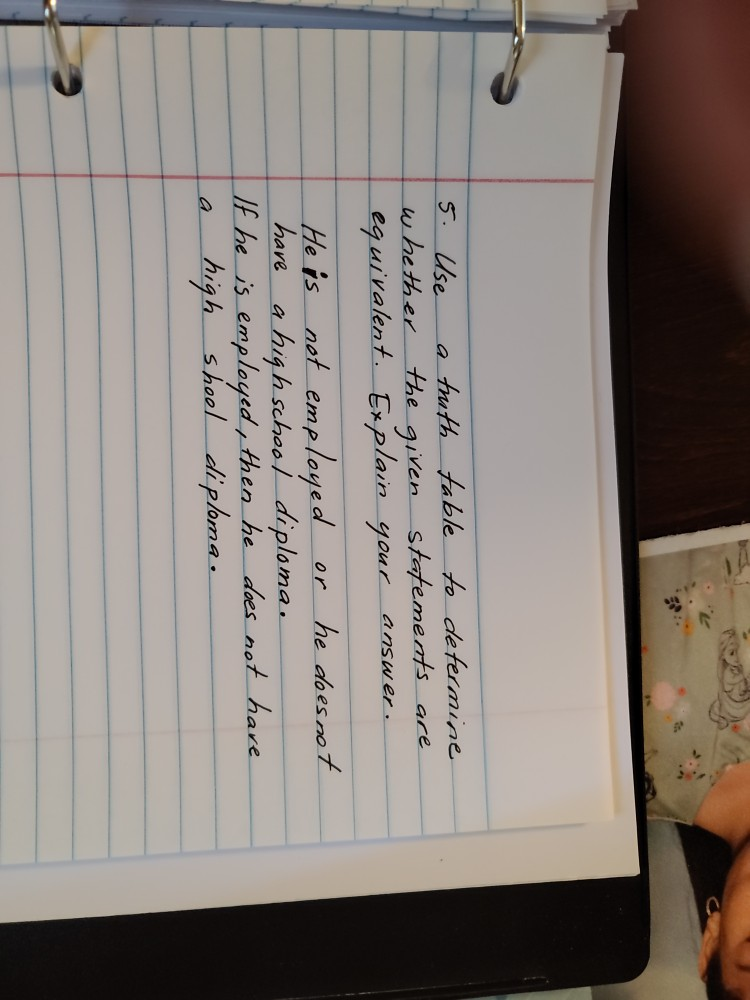 5. Use a truth table to determine
whether the given statements are
equivalent. Explain your answer.
He is not employed or he does not
have a high school diploma.
If he is employed, then he does not have
a high shool diploma.